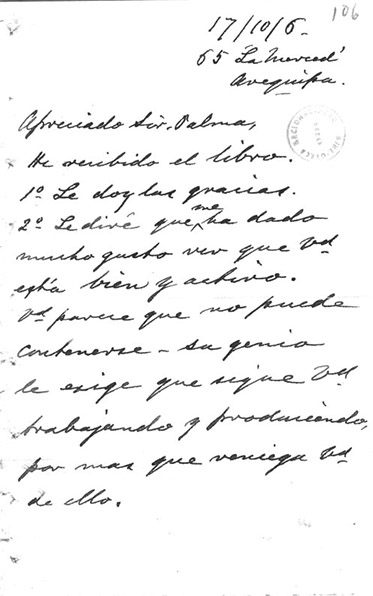 106
17/10/6.
65 "La Merced"
Arequipa.
Apreciado Sir. Palma,
He recibido el libro.
1º Le doy las gracias.
2º Le diré que me ha dado
mucho gusto ver que Vd
está bien y activo.
Vd parece que no puede
contenerse – su genio
le exige que sigue Vd
trabajando y produciendo,
por mas que reniega Vd
de ello.